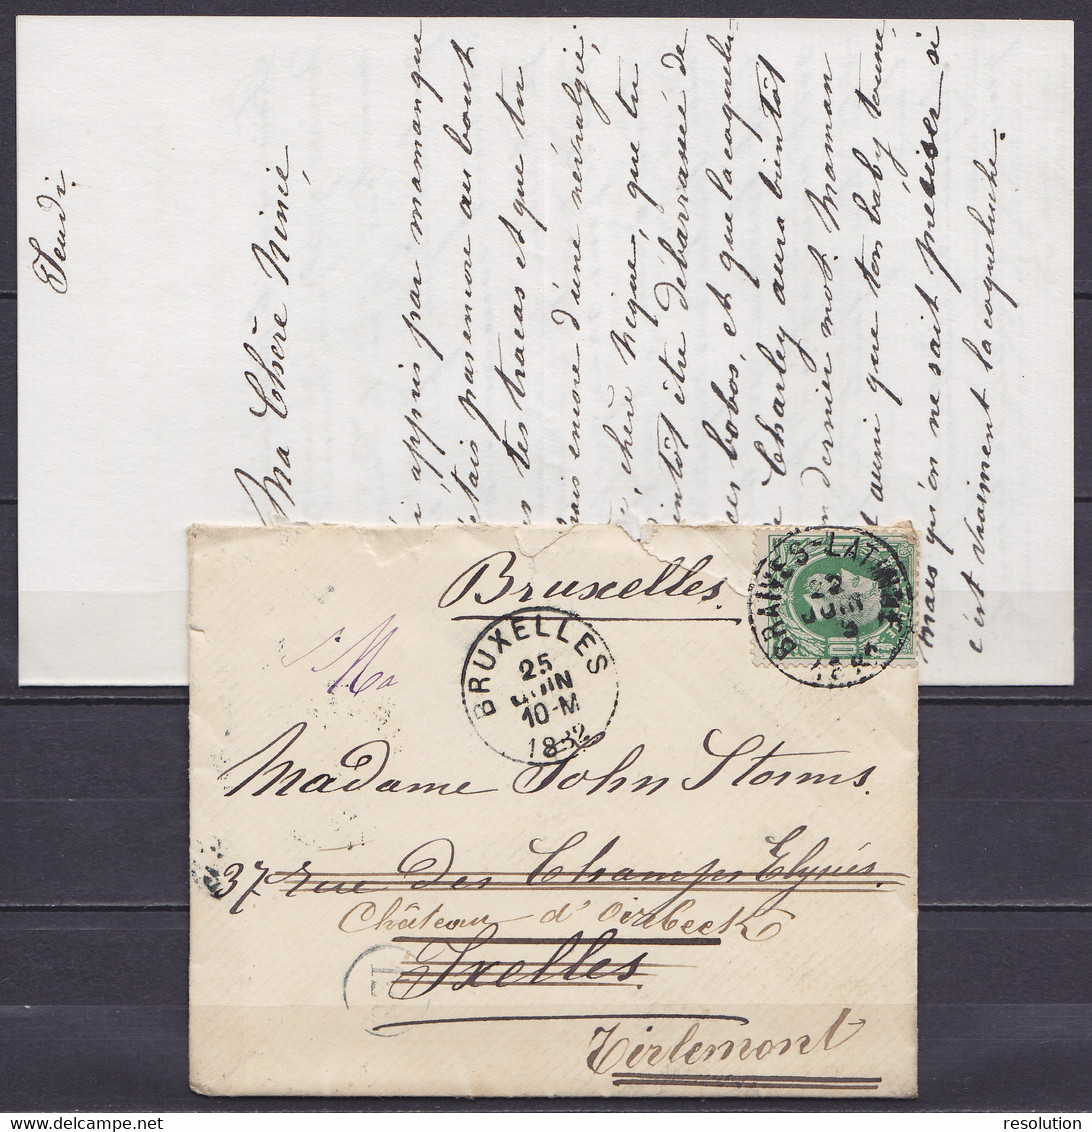 Jeudi.
Ma Chère Mimi,
appris par maman que
étais pas encore au bout
tes tracas et que tu
encore d'une névralgie,
chère Nique, que tu
bientôt être débarrassée de
ces bobos, et que la coquelu-
Charley aura bientôt
dernier mot. Maman
aussi que ton baby tousse
mais qu'on ne sait préciser si
c'est vraiment la coqueluche.
Bruxelles.
BRAIVES-LATINNE
22
JUIN
5
10
Ma
BRUXELLES
25
JUIN
10-M
1882
Madame John Storms.
37 rue des Champs Elysées.
Château d'Oirbeck
Ixelles.
Tirlemont
resolution
delcampe.net